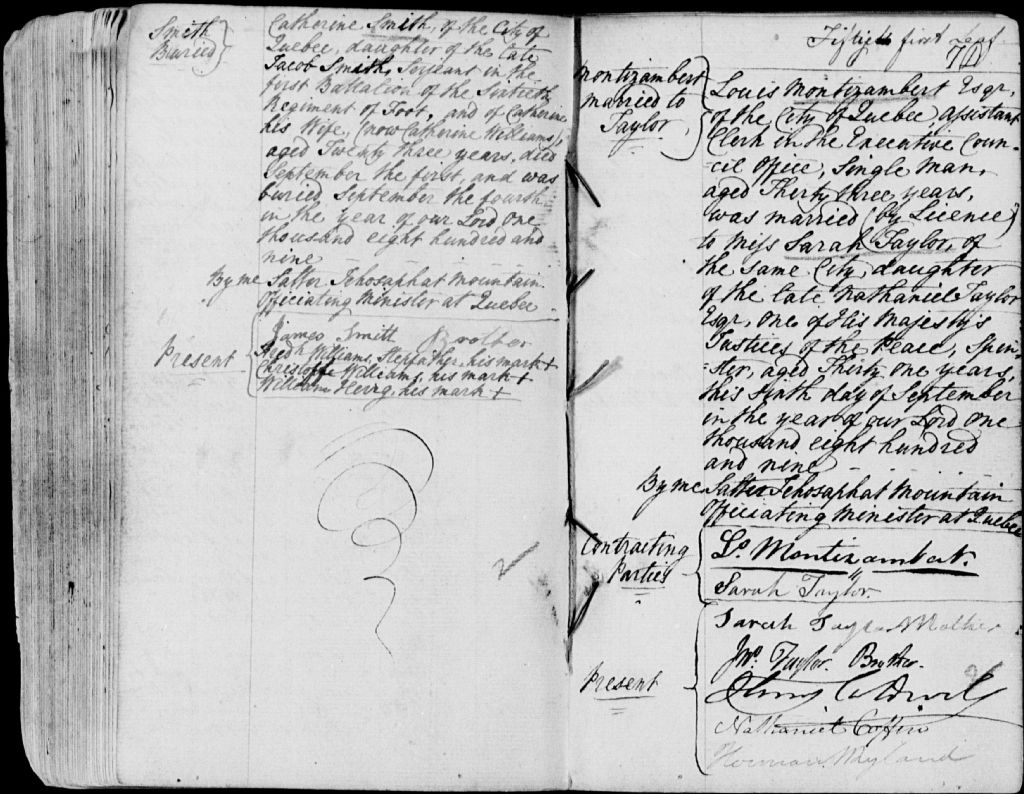 Smith
Buried
Catherine Smith, of the City of
Quebec, daughter of the late
Jacob Smith, Serjeant in the
first Battalion of the Sixtieth
Regiment of Foot, and of Catherine
his Wife, (now Catherine Williams),
aged Twenty three years, died
September the first, and was
buried, September the fourth
in the year of our Lord One
thousand eight hundred and
nine
By me Salter Jehosaphat Mountain
Officiating Minister at Quebec
Present
James Smith Brother
Williams, Stepfather, his mark +
Williams, his mark +
William his mark +
Fiftieth first Leaf
Montizambert
married to
Taylor
Louis Montizambert Esqr,
of the City of Quebec, assistant
Clerk in the Executive Coun-
cil Office, Single Man,
aged Thirty three years,
was married (by Licence)
to Miss Sarah Taylor, of
the same City, daughter
of the late Nathaniel Taylor
Esqr, One of His Majesty's
Justices of the Peace, Spin-
ster, aged Thirty One years,
this day of September
in the year of our Lord One
thousand eight hundred
and nine
By me Salter Jehosaphat Mountain
Officiating Minister at Quebec
Contracting
Parties
Ls. Montizambert.
Sarah Taylor.
Present
Sarah Taylor Mother
Jno. Taylor. Brother.
Henry Caldwell
Nathaniel Coffin